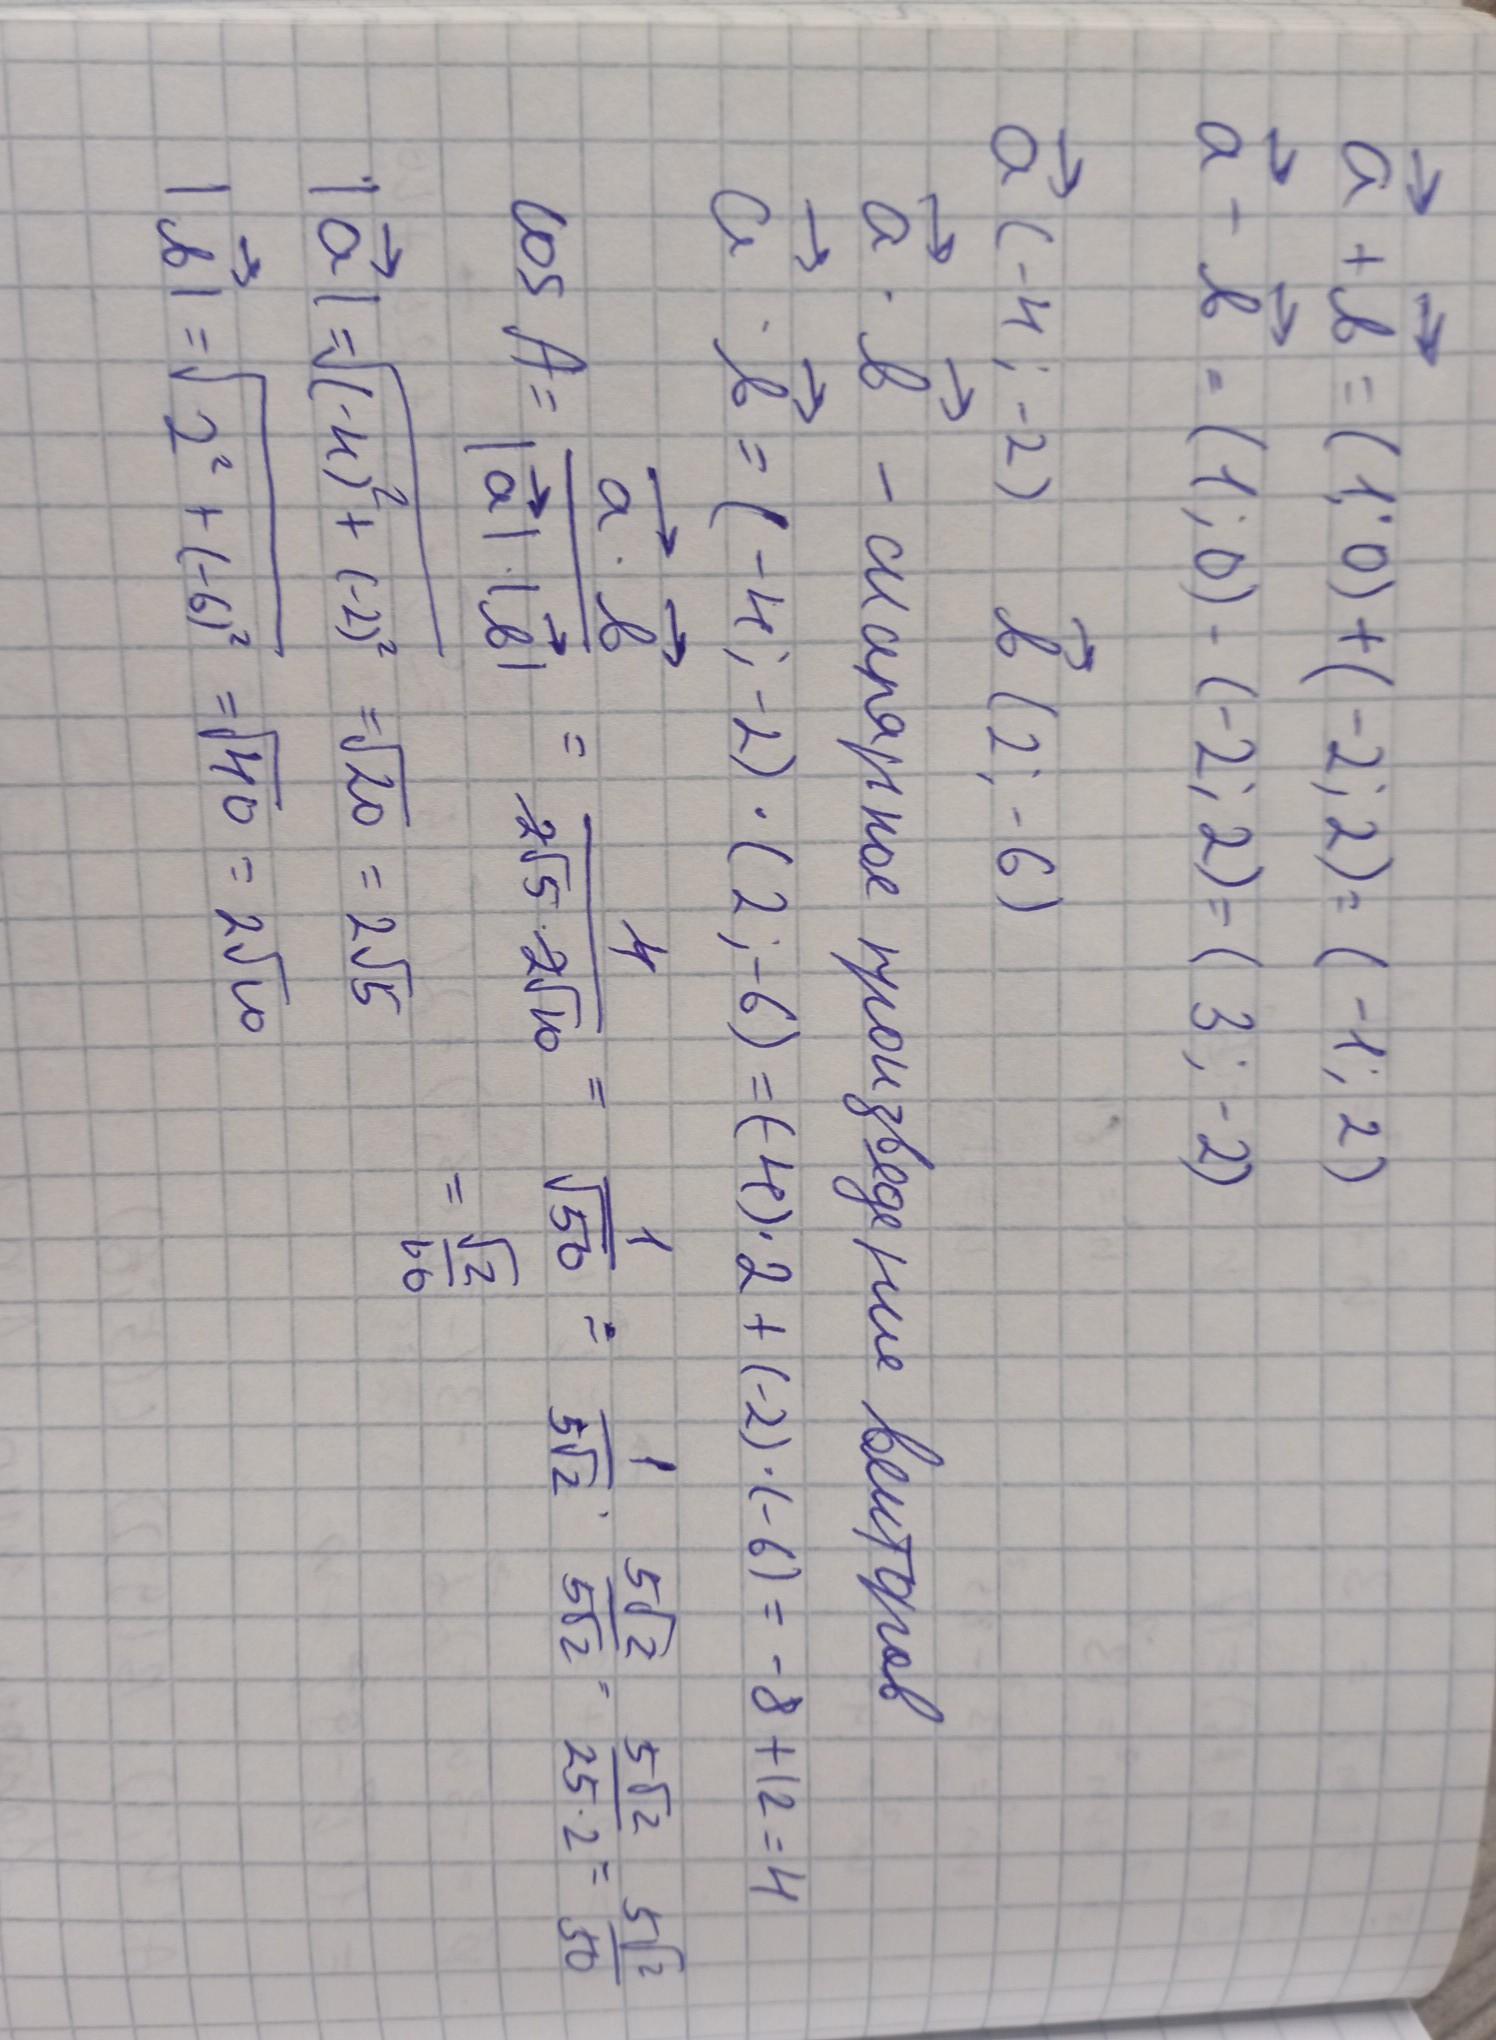 a⃗ + b⃗ = (1; 0) + (-2; 2) = (-1; 2)
a⃗ - b⃗ = (1; 0) - (-2; 2) = (3; -2)
a⃗ (-4; -2) b⃗ (2; -6)
a⃗ · b⃗ - скалярное произведение векторов
a⃗ · b⃗ = (-4; -2) · (2; -6) = (-4) · 2 + (-2) · (-6) = -8 + 12 = 4
cos A = a⃗ · b⃗ / |a⃗| · |b⃗| = 4 / 2√5 · 2√10 = 1 / √50 = 1 / 5√2 · 5√2 / 5√2 = 5√2 / 25 · 2 = 5√2 / 50
= √2 / 10
|a⃗| = √(-4)² + (-2)² = √20 = 2√5
|b⃗| = √2² + (-6)² = √40 = 2√10